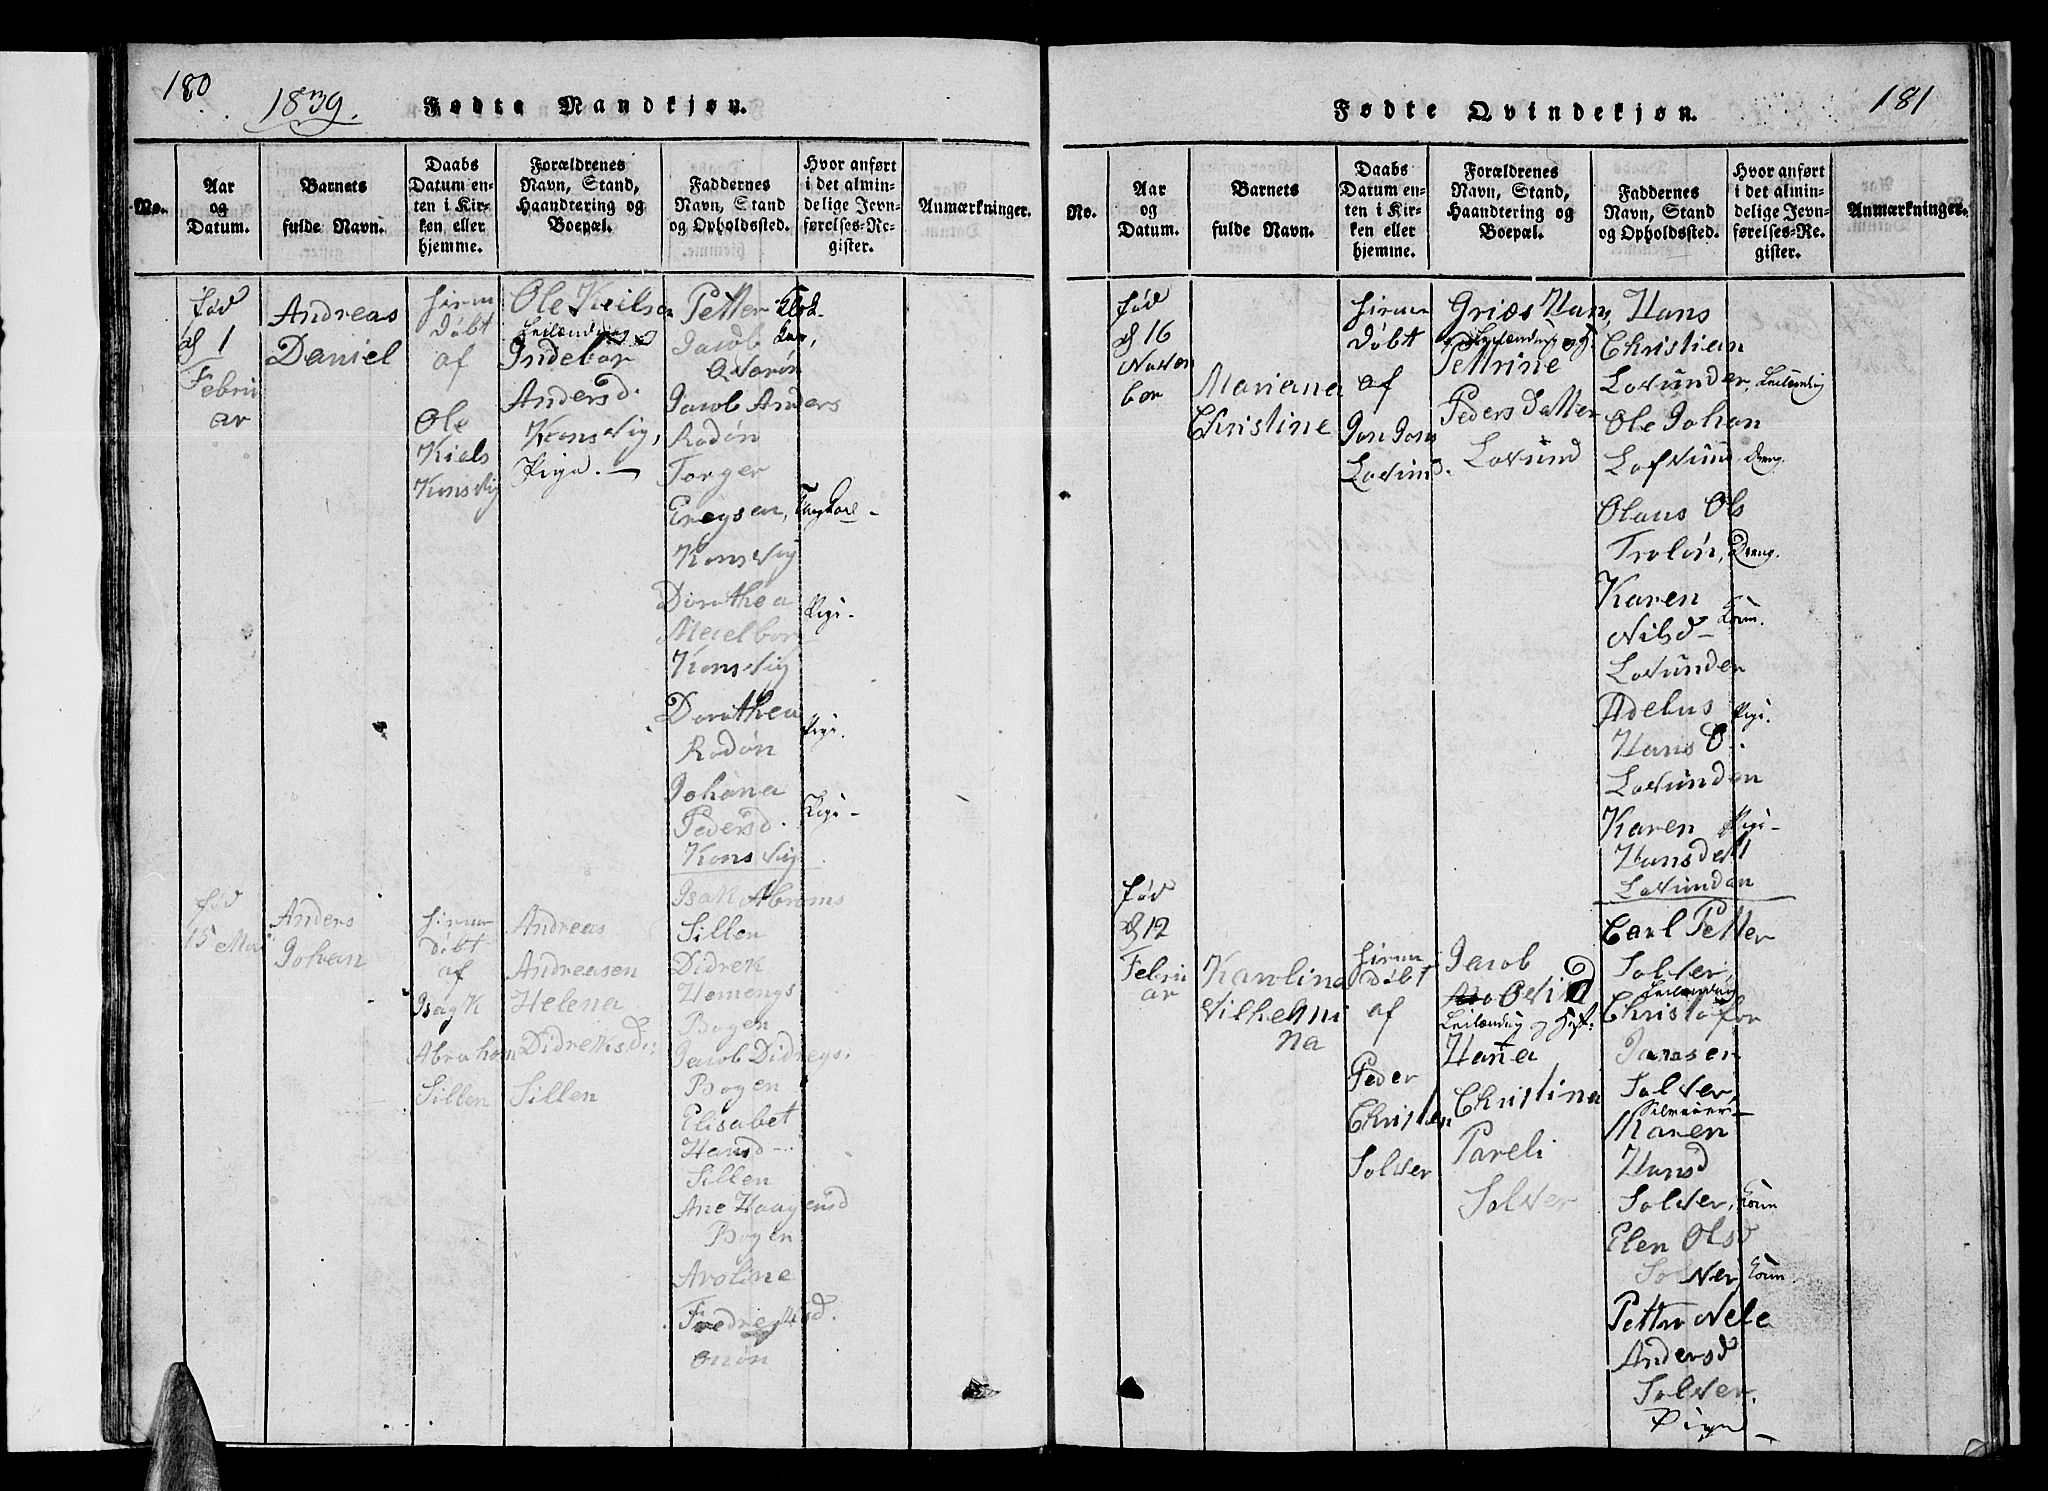 180
1839.
Fødte Mandkjøn.
No.
Aar
og
Datum.
Barnets
fulde Navn.
Daabs
Datum en-
ten i Kir-
ken eller
hjemme.
Forældrenes
Navn, Stand,
Haandtering og
Boepæl.
Faddernes
Navn, Stand
og Opholdssted.
Hvor anført
i det almin-
delige Jevn-
førelses-Re-
gister.
Anmærkninger.
fød
d 1
Febru
ar
Andreas
Daniel
hiem
døbt
af
Ole
Kiels
Konsvig
Ole Kielsen
Leilænding
Indebor
Andersd.
Konsvig,
Pige.
Petter Klok-
ker,
Jacob
Qvarøn
Jacob Anders
Rødøn
Torger
Ereysen, Ungkarl
Konsvig
Dorthea Pige.
Meselbor
Konsvig
Dorthea Pige.
Rødøn
Johana Pige.
Pedersd.
Konsvig
fød
15 Mai
Anders
Johan
hieme
døbt
af
Isagk
Abraham
Sillen
Andreas
Andreasen
Helena
Didreksd:
Sillen
Isak Abrams
Sillen
Didrek
Hemengs
Bogen
Jacob Didregs.
Bogen
Elisabet
Hansd
Sillen
Ane Haagensd
Bogen
Aroline
Fredreksd.
onøn
181
Fødte Qvindekjøn.
No.
Aar
og
Datum.
Barnets
fulde Navn.
Daabs
Datum en-
ten i Kir-
ken eller
hjemme.
Forældrenes
Navn, Stand,
Haandtering og
Boepæl.
Faddernes
Navn, Stand
og Opholdssted.
Hvor anført
i det almin-
delige Jevn-
førelses-Re-
gister.
Anmærkninger.
fød
d 16
Novem
ber
Mariana
Christine
hieme
døbt
af
Jon Jons
Lovund.
Griøs Hans
Leilænding og
Pettrine
Peders datter
Lovund
Hans
Christian
Lovunden, Leilænding
Ole Johan
Lofvund, Dreng.
Olaus Ols
Troløn, Dreng.
Karen
Nilsd Kone.
Lovunden
Adelus Pige.
Hans O.
Lovunden
Karen Pige
Hansdett
Lovunden
fød
d 12
Febru
ar
Karolina
Vilhelmi
na
hieme
døbt
af
Peder
Christen
Solver
Jacob
Leilænding og
Hana
Christina
Pareli
Solver
Carl Petter
Solver,
Leilænding
Christofer
Jansen
Solver,
Maren
Hansd
Solver, Kone
Elen Olsd
Solver, Kone.
Petter Nele
Andersd
Solver.
Pige